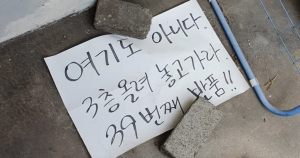 여기도 아니다.
3층 올려 놓고가라.
39번째 반품!!